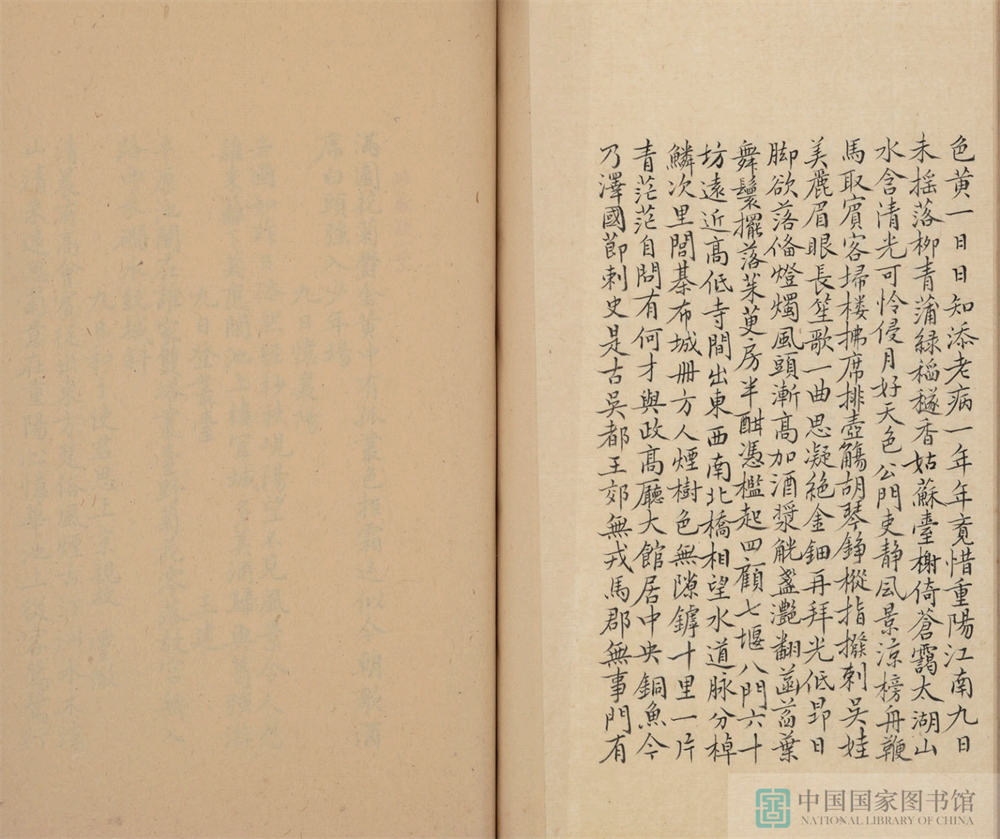 色黄一日日知添老病一年年竟惜重陽江南九日
未摇落柳青蒲緑稻穟香姑蘇臺榭倚蒼靄太湖山
水含清光可怜侵月好天色公門吏静風景涼榜舟鞭
馬取賓客掃楼拂席排壺觴胡琴錚樅指撥剌吴娃
美麗眉眼長笙歌一曲思凝絶金鈿再拜光低昂日
脚欲落俻燈燭風頭漸高加酒漿觥盞灔翻菡萏葉
舞鬟擺落茱萸房半酣憑檻起四顧七堰八門六十
坊遠近高低寺間出東西南北橋相望水道脉分棹
鱗次里閭棊布城冊方人煙樹色無隙罅十里一片
青茫茫自問有何才與政高廳大館居中央銅魚今
乃澤國節刺史是古吴都王郊無戎馬郡無事門有
中国国家图书馆
NATIONAL LIBRARY OF CHINA